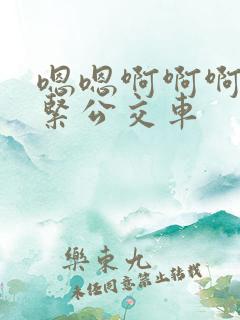 嗯嗯啊啊啊
紧公交车
樂東九
未经同意禁止转载